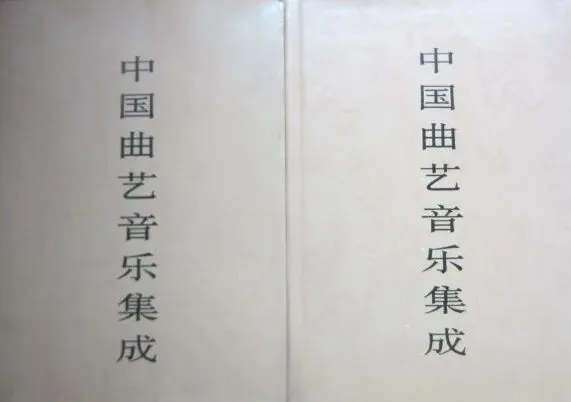 中国曲艺音乐集成
中国曲艺音乐集成